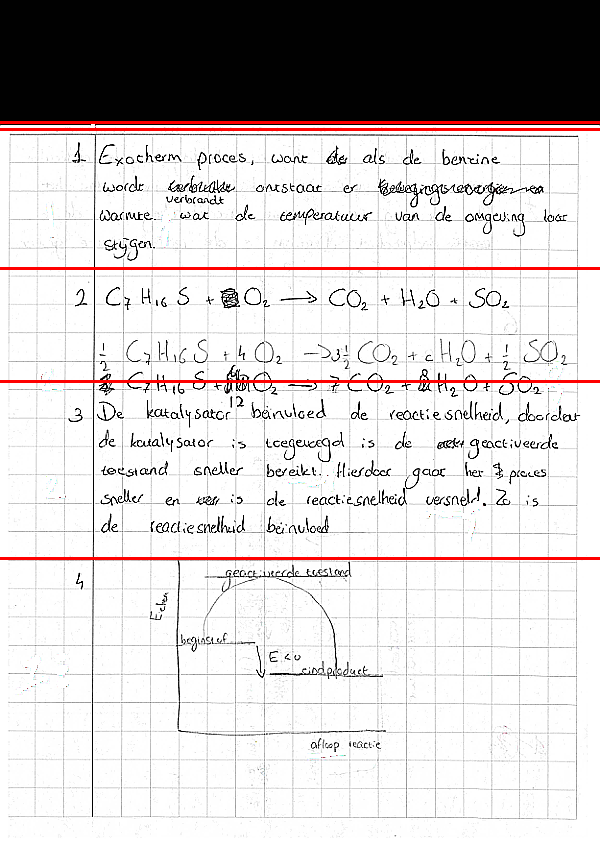 1 Exocherm proces, want als de benzine
wordt verbrandt ontstaat er
warmte wat de temperatuur van de omgeving laat
stijgen.
2 C7 H16 S + O2 → CO2 + H2O + SO2
1/2 C7H16S + 4 O2 → 3 1/2 CO2 + H2O + 1/2 SO2
C7H16S + 12 O2 → 7 CO2 + 8 H2O + SO2
3 De katalysator beinvloed de reactiesnelheid, doordat
de katalysator is toegevoegd is de geactiveerde
toestand sneller bereikt. Hierdoor gaat het proces
sneller en is de reactiesnelheid versneld. Zo is
de reactiesnelheid beinvloed
4
geactiveerde toestand
beginstof
E < 0
eindproduct
afloop reactie